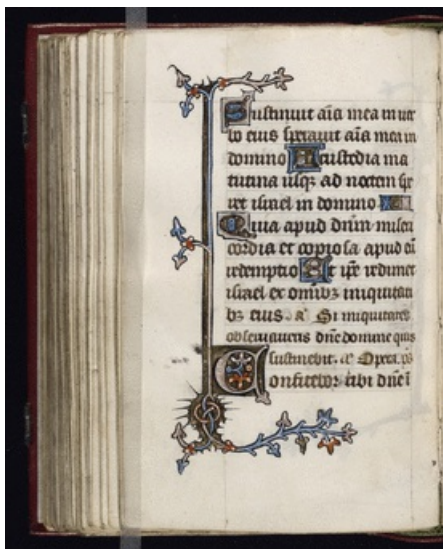 Sustinuit aīa mea in uer
bo eius sperauit aīa mea in
domino A custodia ma
tutina usqꝫ ad noctem spe
ret israel in domino
Quia apud dn̄m miseri
cordia et copiosa apud eū
redemptio Et ip̄e redimet
israel ex omībꝫ iniquitati
bꝫ eius. a᷑ Si iniquitates
obseruaueris dn̄e domine quis
sustinebit. a᷑ Opera
Confitebor tibi dn̄e ī